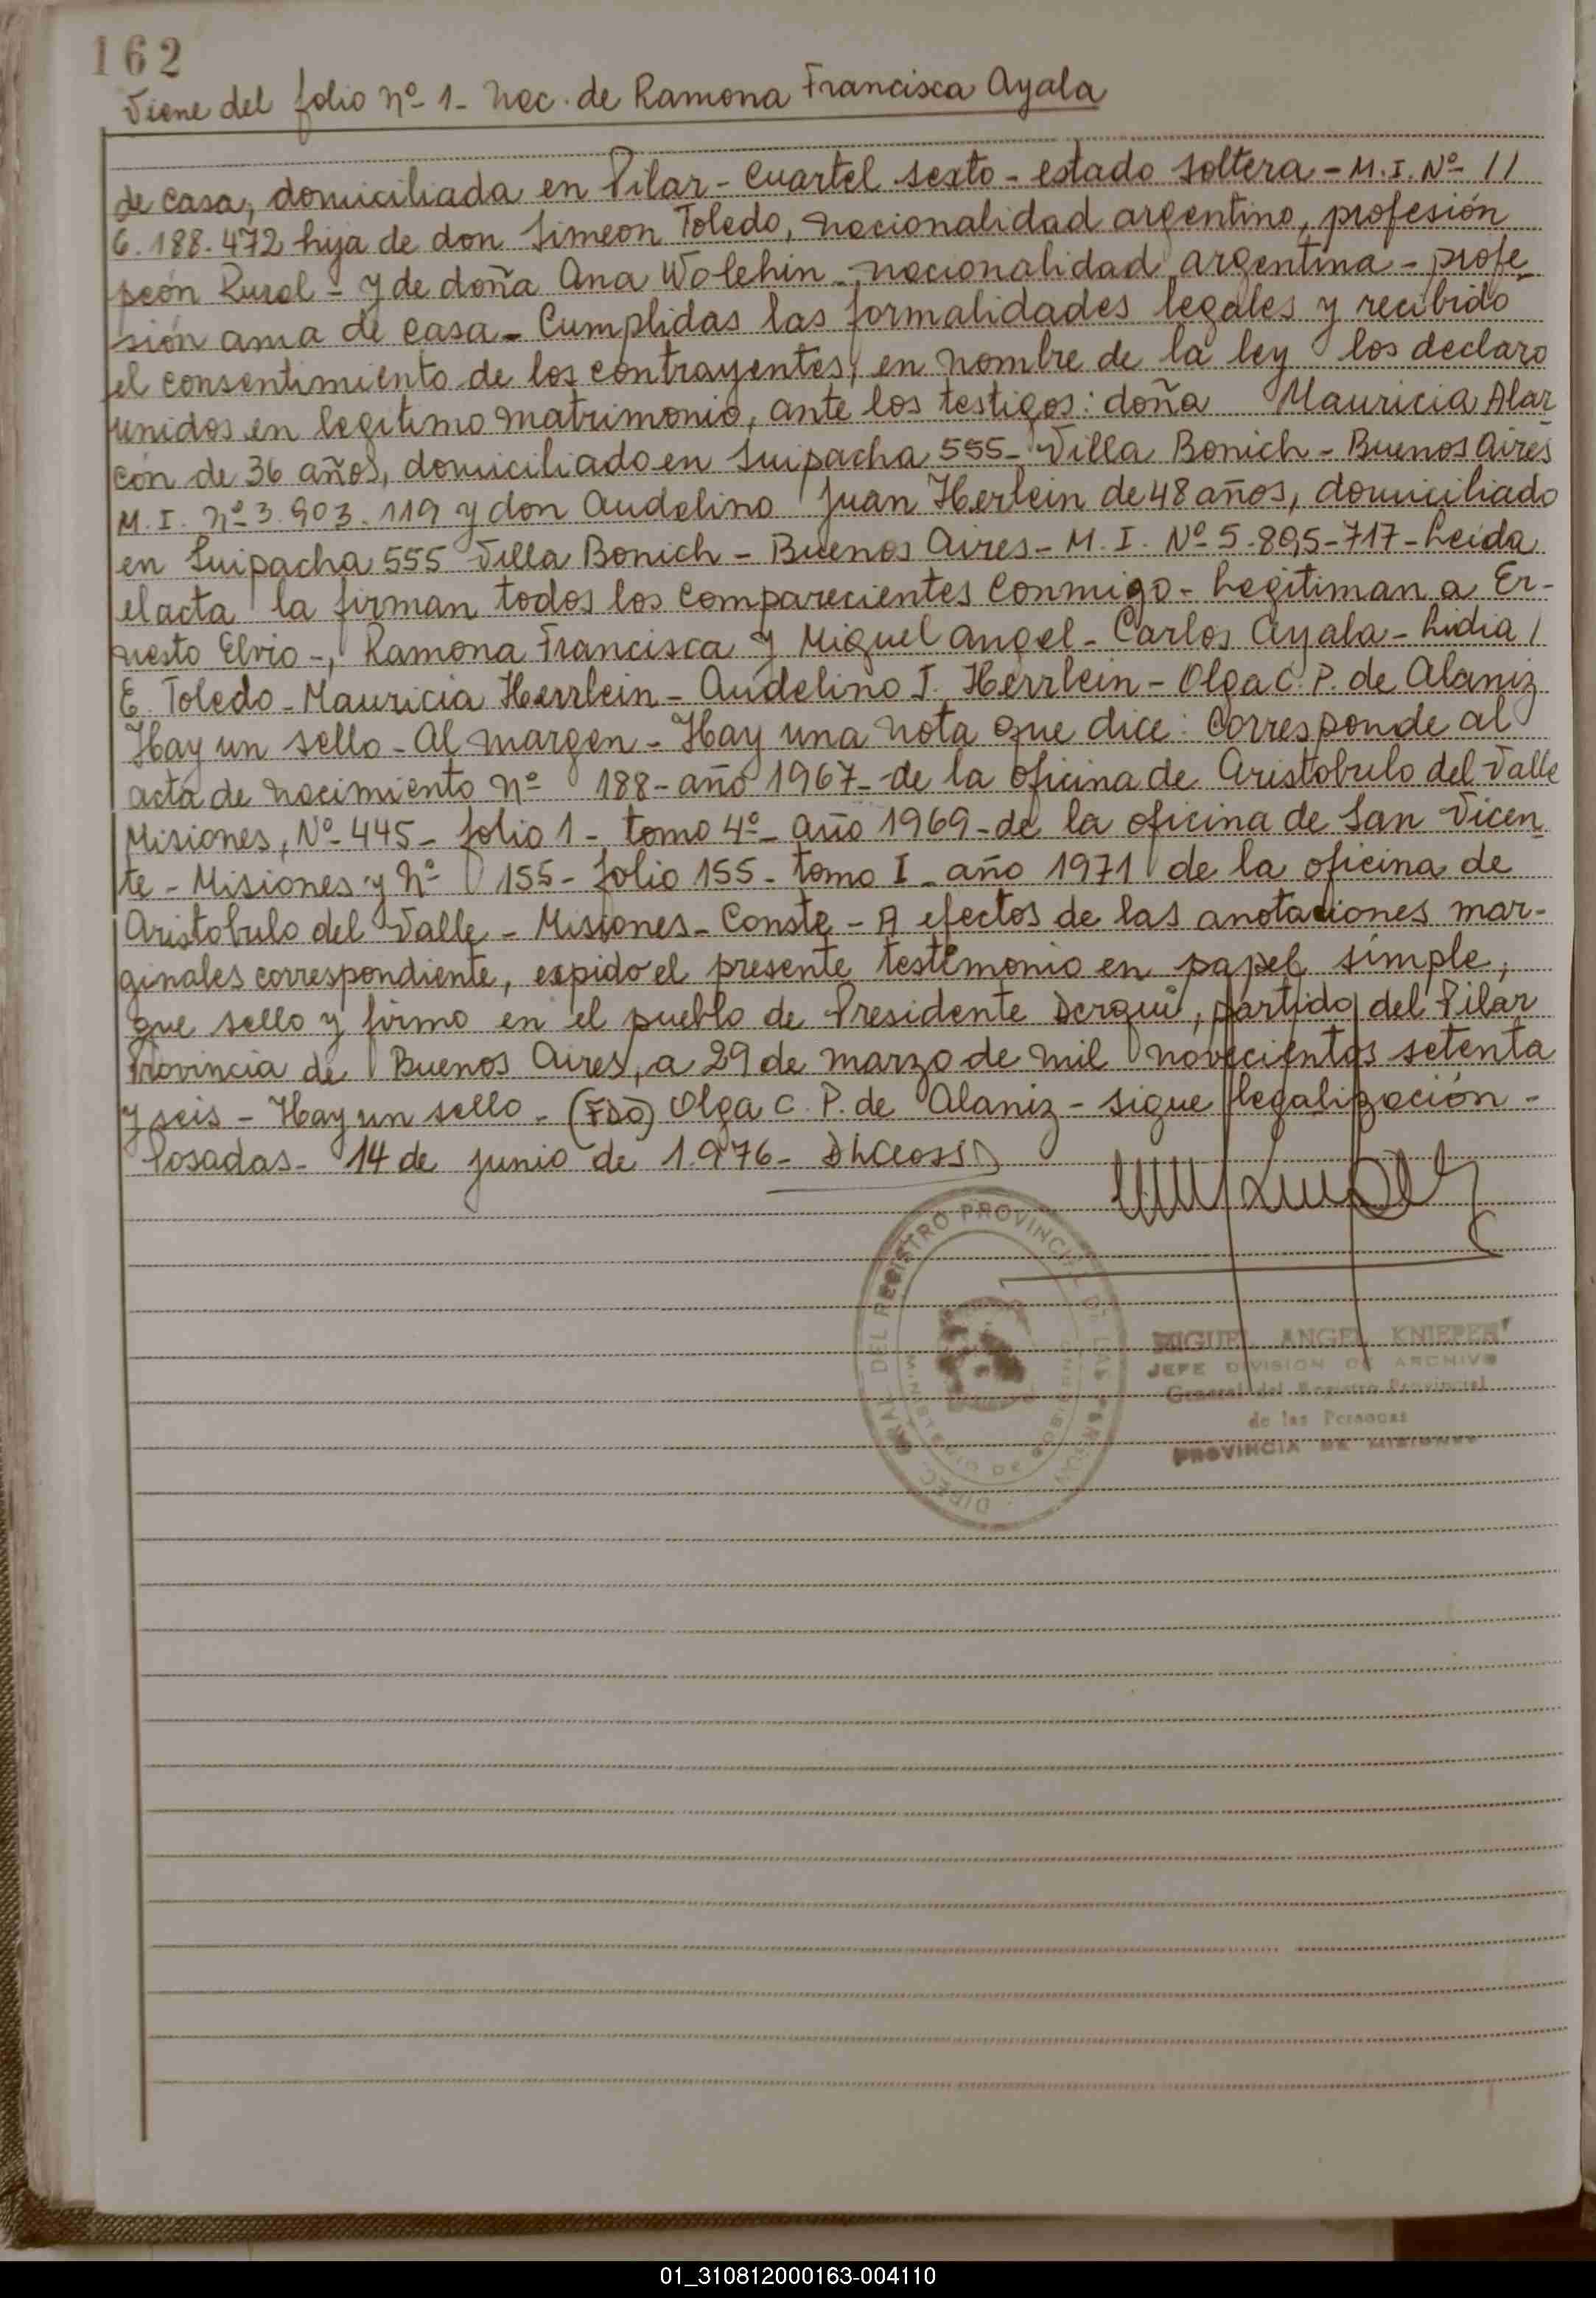 162
Viene del folio Nº 1 - Nac. de Ramona Francisca Ayala
de casa, domiciliada en Pilar - Cuartel sexto - estado soltera - M. I. Nº //
6.188.472 hija de don Simeon Toledo, nacionalidad argentino, profesión
peón Rural - y de doña Ana Wolehin - nacionalidad argentina - profe-
sión ama de casa - Cumplidas las formalidades legales y recibido
el consentimiento de los contrayentes, en nombre de la ley los declaro
unidos en legitimo matrimonio, ante los testigos: doña Mauricia Alar
cón de 36 años, domiciliado en Suipacha 555 - Villa Bonich - Buenos Aires
M. I. Nº 3.903.119 y don Audelino Juan Herlein de 48 años, domiciliado
en Suipacha 555 Villa Bonich - Buenos Aires - M. I. Nº 5.895-717 - Leida
el acta la firman todos los comparecientes conmigo - Legitiman a Er-
nesto Elvio -, Ramona Francisca y Miguel angel - Carlos Ayala - Lidia /
E. Toledo - Mauricia Herrlein - Audelino J. Herrlein - Olga C. P. de Alaniz
Hay un sello - Al margen - Hay una nota que dice: Corresponde al
acta de nacimiento Nº 188 - año 1967 - de la oficina de Aristobulo del Valle
Misiones, Nº 445 - folio 1 - tomo 4º - año 1969 - de la oficina de San Vicen
te - Misiones y Nº 155 - folio 155 - tomo I - año 1971 de la oficina de
Aristobulo del Valle - Misiones - Conste - A efectos de las anotaciones mar-
ginales correspondiente, expido el presente testimonio en papel simple,
que sello y firmo en el pueblo de Presidente Derqui, partido del Pilar
Provincia de Buenos Aires, a 29 de marzo de mil novecientos setenta
y seis - Hay un sello - (FDO) Olga C. P. de Alaniz - sigue legalización -
Posadas - 14 de junio de 1.976 -
DIREC. GRAL. DEL REGISTRO PROVINCIAL DE LAS PERSONAS
MINISTERIO DE GOBIERNO
MIGUEL ANGEL KNIEPER
JEFE DIVISION DE ARCHIVO
General del Registro Provincial
de las Personas
PROVINCIA DE MISIONES
01_310812000163-004110